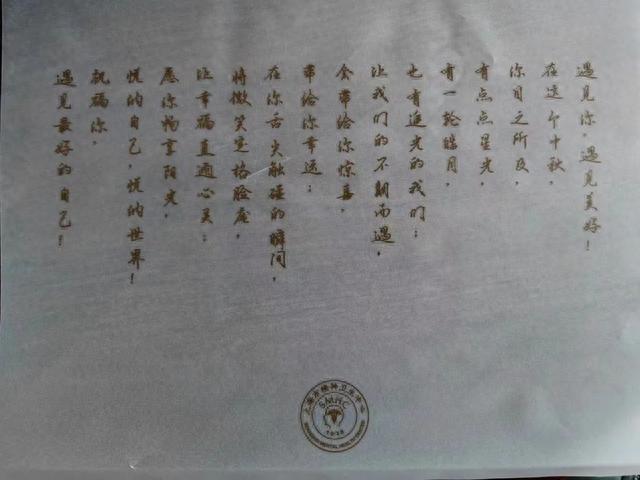 遇见你，遇见美好！
在这个中秋，
你目之所及，
有点点星光，
有一轮皓月，
也有追光的我们；
让我们的不期而遇，
会带给你惊喜，
带给你幸运；
在你舌尖触碰的瞬间，
将微笑定格脸庞，
让幸福直通心灵；
愿你畅享阳光，
悦的自己，悦的世界！
祝福你，
遇见最好的自己！
上海市精神卫生中心
SMHC
1935
SHANGHAI MENTAL HEALTH CENTER